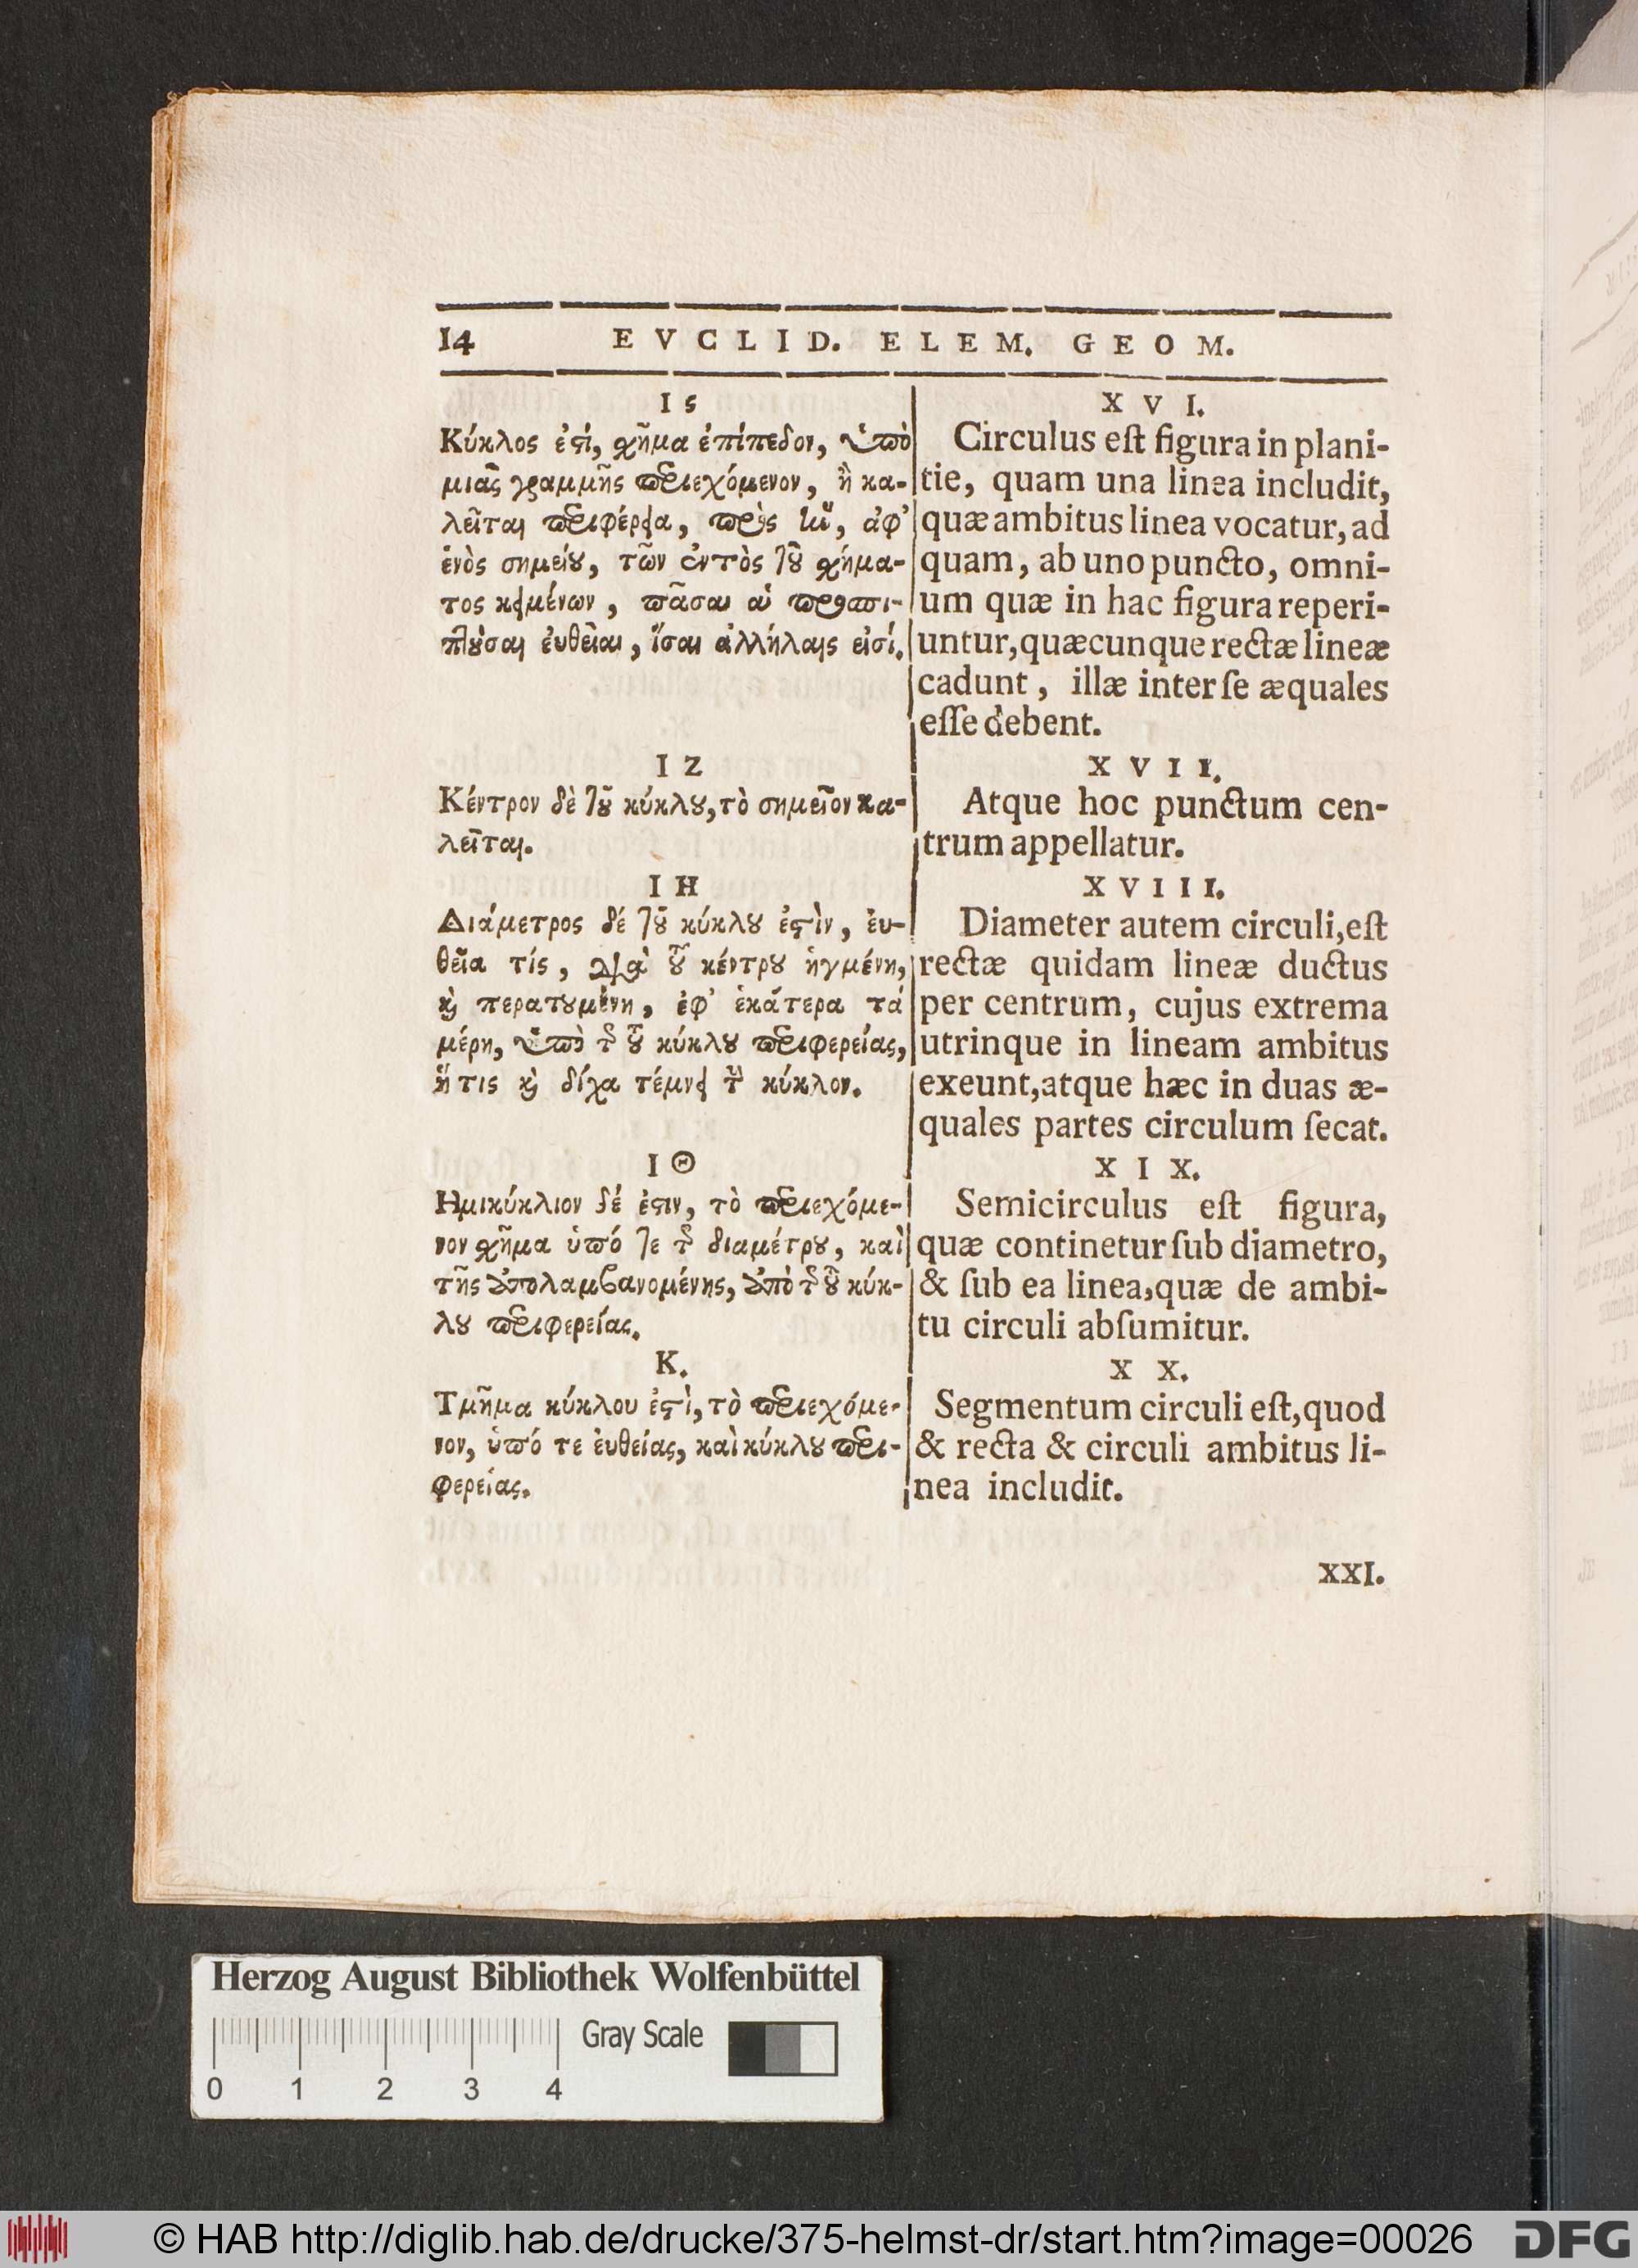 14 EVCLID. ELEM. GEOM.
Ις
Κύκλος ἐςί, χῆμα ἐπίπεδον, ὑπὸ
μιᾶς γραμμῆς περιεχόμενον, ἣ κα-
λεῖται περιφέρεια, πρὸς ἣν, ἀφ’
ἑνὸς σημείȣ, τῶν ἐντὸς τȣ͂ χήμα-
τος κειμένων, πᾶσαι αἱ προσπί-
πτȣσαι ἐυθεῖαι, ἴσαι ἀλλήλαις εἰσί.
ΙΖ
Κέντρον δὲ τȣ͂ κύκλȣ, τὸ σημεῖον κα-
λεῖται.
ΙΗ
Διάμετρος δέ τȣ͂ κύκλȣ ἐςὶν, ἐυ-
θεῖα τίς, διὰ τȣ͂ κέντρȣ ἠγμένη,
καὶ περατȣμένη, ἐφ’ ἑκάτερα τά
μέρη, ὑπὸ τῆς τȣ͂ κύκλȣ περιφερείας,
ἥτις καὶ δίχα τέμνει τὸν κύκλον.
ΙΘ
Ημικύκλιον δέ ἐςιν, τὸ περιεχόμε-
νον χῆμα ὑπό τε τῆς διαμέτρȣ, καὶ
τῆς ἀπολαμβανομένης, ἀπὸ τῆς τȣ͂ κύκ-
λȣ περιφερείας.
Κ.
Τμῆμα κύκλου ἐςὶ, τὸ περιεχόμε-
νον, ὑπό τε ἐυθείας, καὶ κύκλȣ περι-
φερείας.
XVI.
Circulus eſt figura in plani-
tie, quam una linea includit,
quæ ambitus linea vocatur, ad
quam, ab uno puncto, omni-
um quæ in hac figura reperi-
untur, quæcunque rectæ lineæ
cadunt, illæ inter ſe æquales
eſſe debent.
XVII.
Atque hoc punctum cen-
trum appellatur.
XVIII.
Diameter autem circuli, eſt
rectæ quidam lineæ ductus
per centrum, cujus extrema
utrinque in lineam ambitus
exeunt, atque hæc in duas æ-
quales partes circulum ſecat.
XIX.
Semicirculus eſt figura,
quæ continetur ſub diametro,
& ſub ea linea, quæ de ambi-
tu circuli abſumitur.
XX.
Segmentum circuli eſt, quod
& recta & circuli ambitus li-
nea includit.
XXI.
Herzog August Bibliothek Wolfenbüttel
Gray Scale
0 1 2 3 4
© HAB http://diglib.hab.de/drucke/375-helmst-dr/start.htm?image=00026
DFG